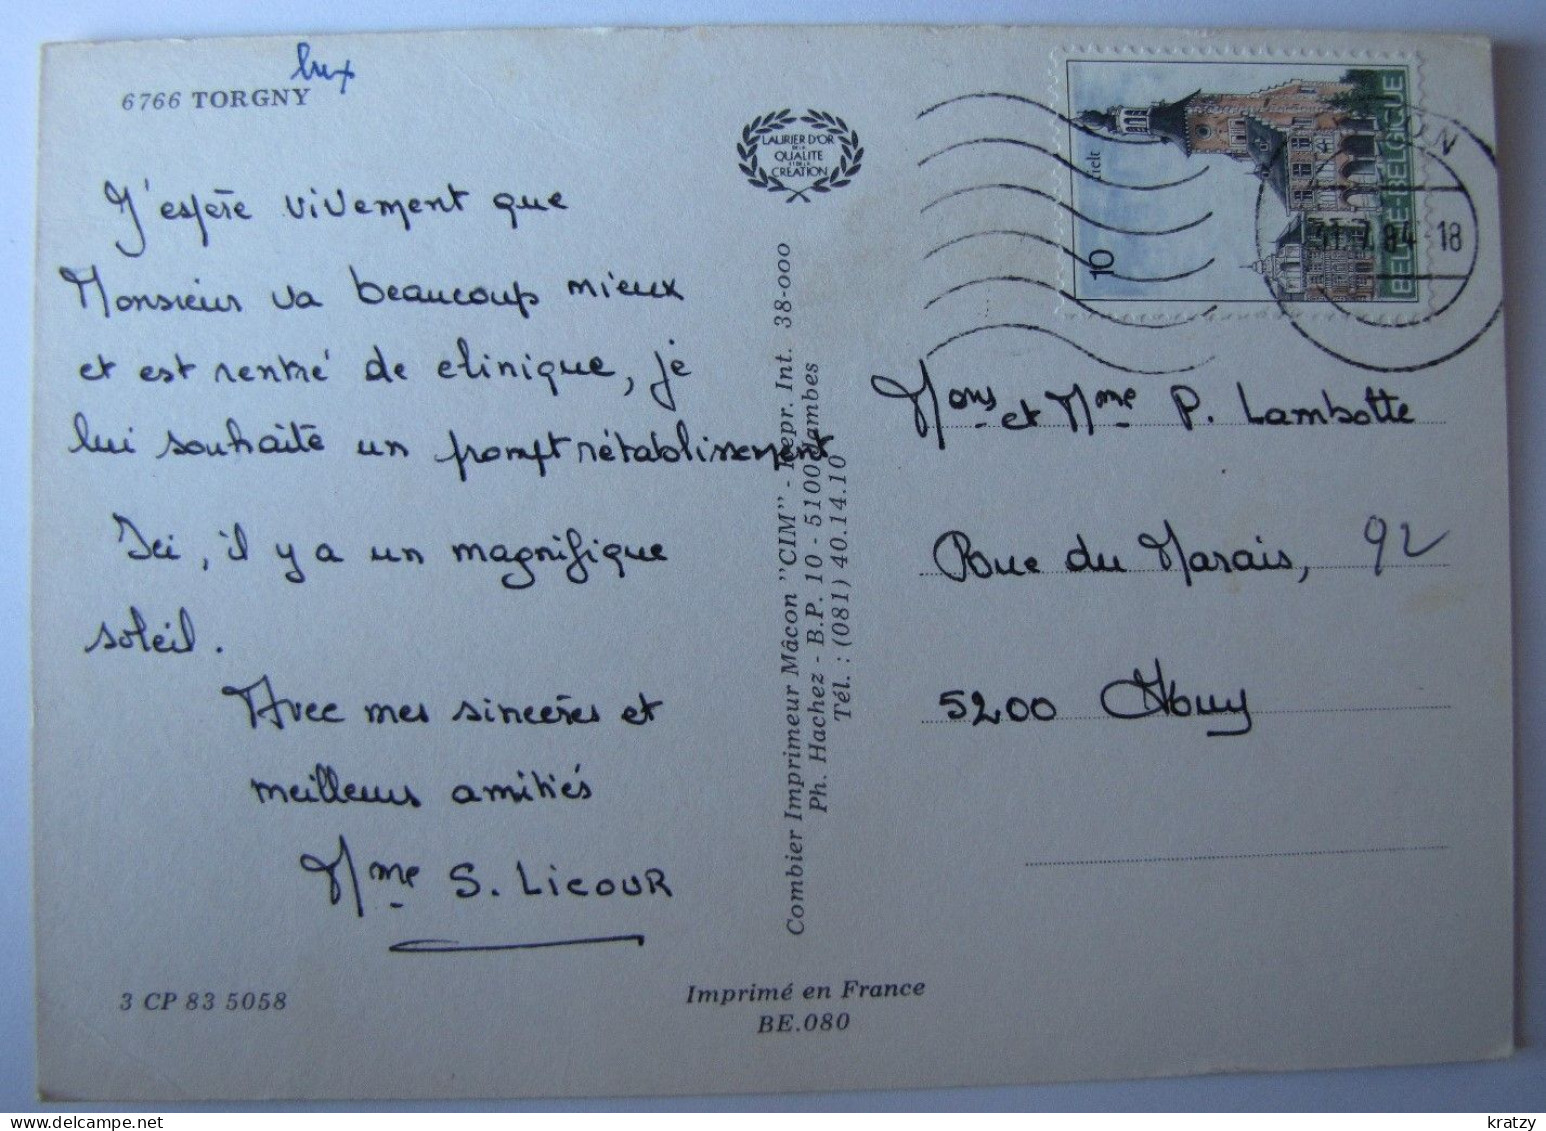 lux
6766 TORGNY
J'espère vivement que
Monsieur va beaucoup mieux
et est rentré de clinique, je
lui souhaite un prompt rétablissement
Ici, il y a un magnifique
soleil.
Avec mes sincères et
meilleurs amitiés
Mme S. LICOUR
3 CP 83 5058
LAURIER D'OR
DE LA
QUALITE
ET DE LA
CREATION
Combier Imprimeur Mâcon "CIM" - Repr. Int. 38-000
Ph. Hachez - B.P. 10 - 5100 Jambes
Tél. : (081) 40.14.10
Imprimé en France
BE.080
tielt
10
BELGIE-BELGIQUE
31.7.84 18
Mons et Mme P. Lambotte
Rue du Marais, 92
5200 Huy
delcampe.net
kratzy